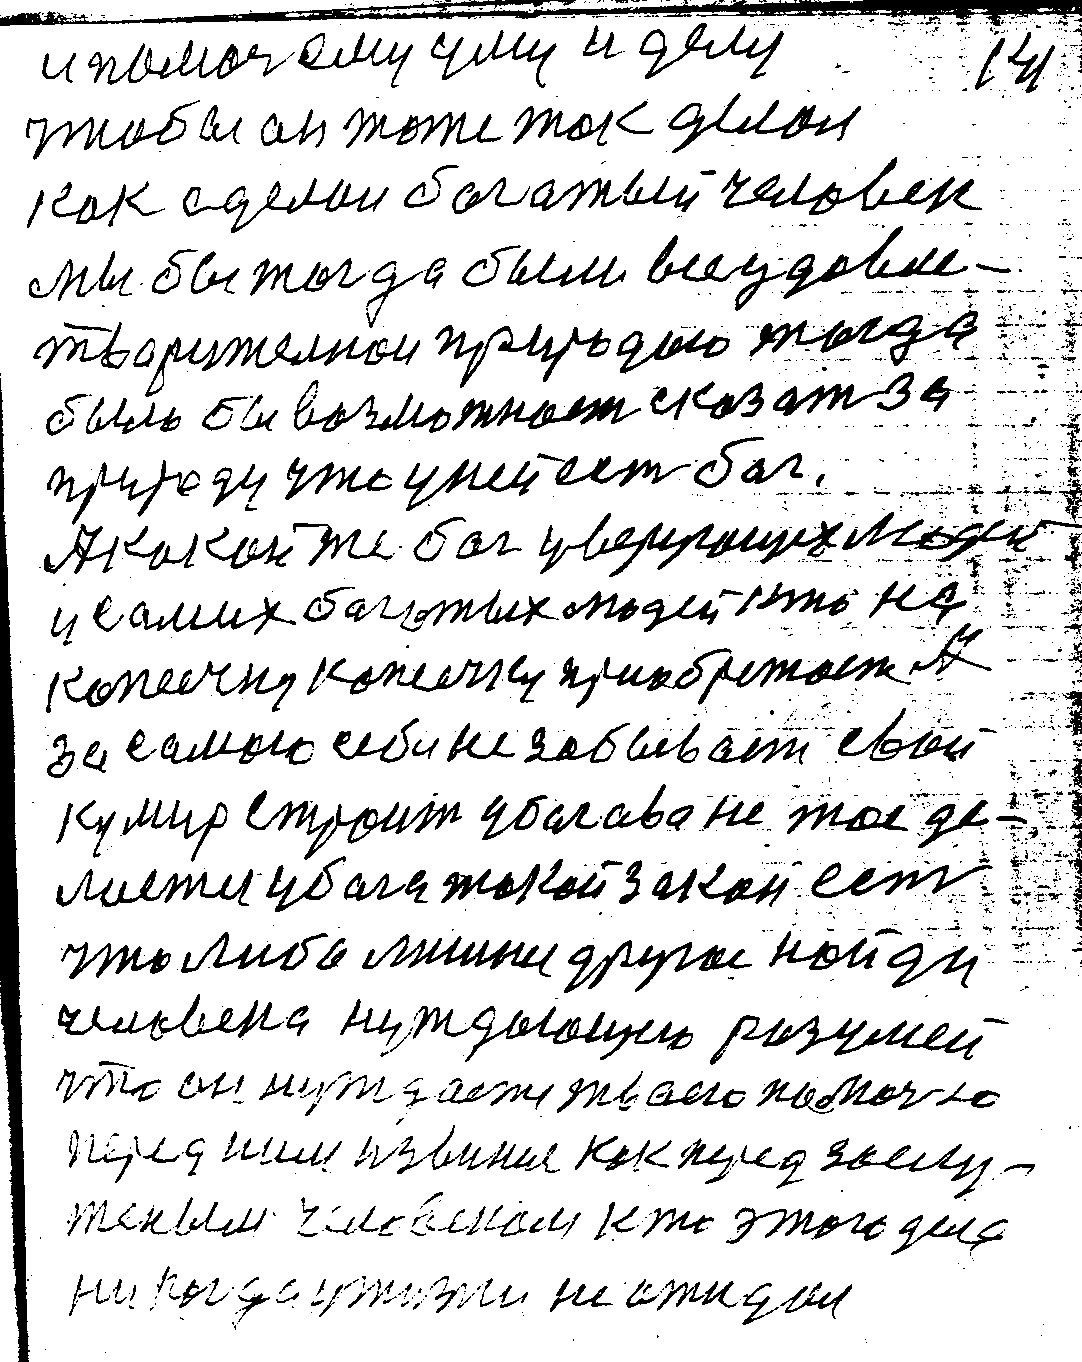 и помоч ему уму и делу 14
чтобы он тоже так делал
как сделал богатый человек
мы бы тогда были все удовле-
творителнои природою тогда
было бы возможност сказат за
природу что у ней ест бог.
А какой же бог у верующих людей
у самих богатых людей кто на
копеечку копеечку приобретает А
за самою себя не забывает свой
кумир строит у богова не тое де-
лается у бога такой закон ест
что либо лишнее другое найди
человека нуждающую разумей
что он нуждается твоею помочю
перед ним извинис как перед заслу-
женым человеком кто этого дела
никогда у жизни не ожидал